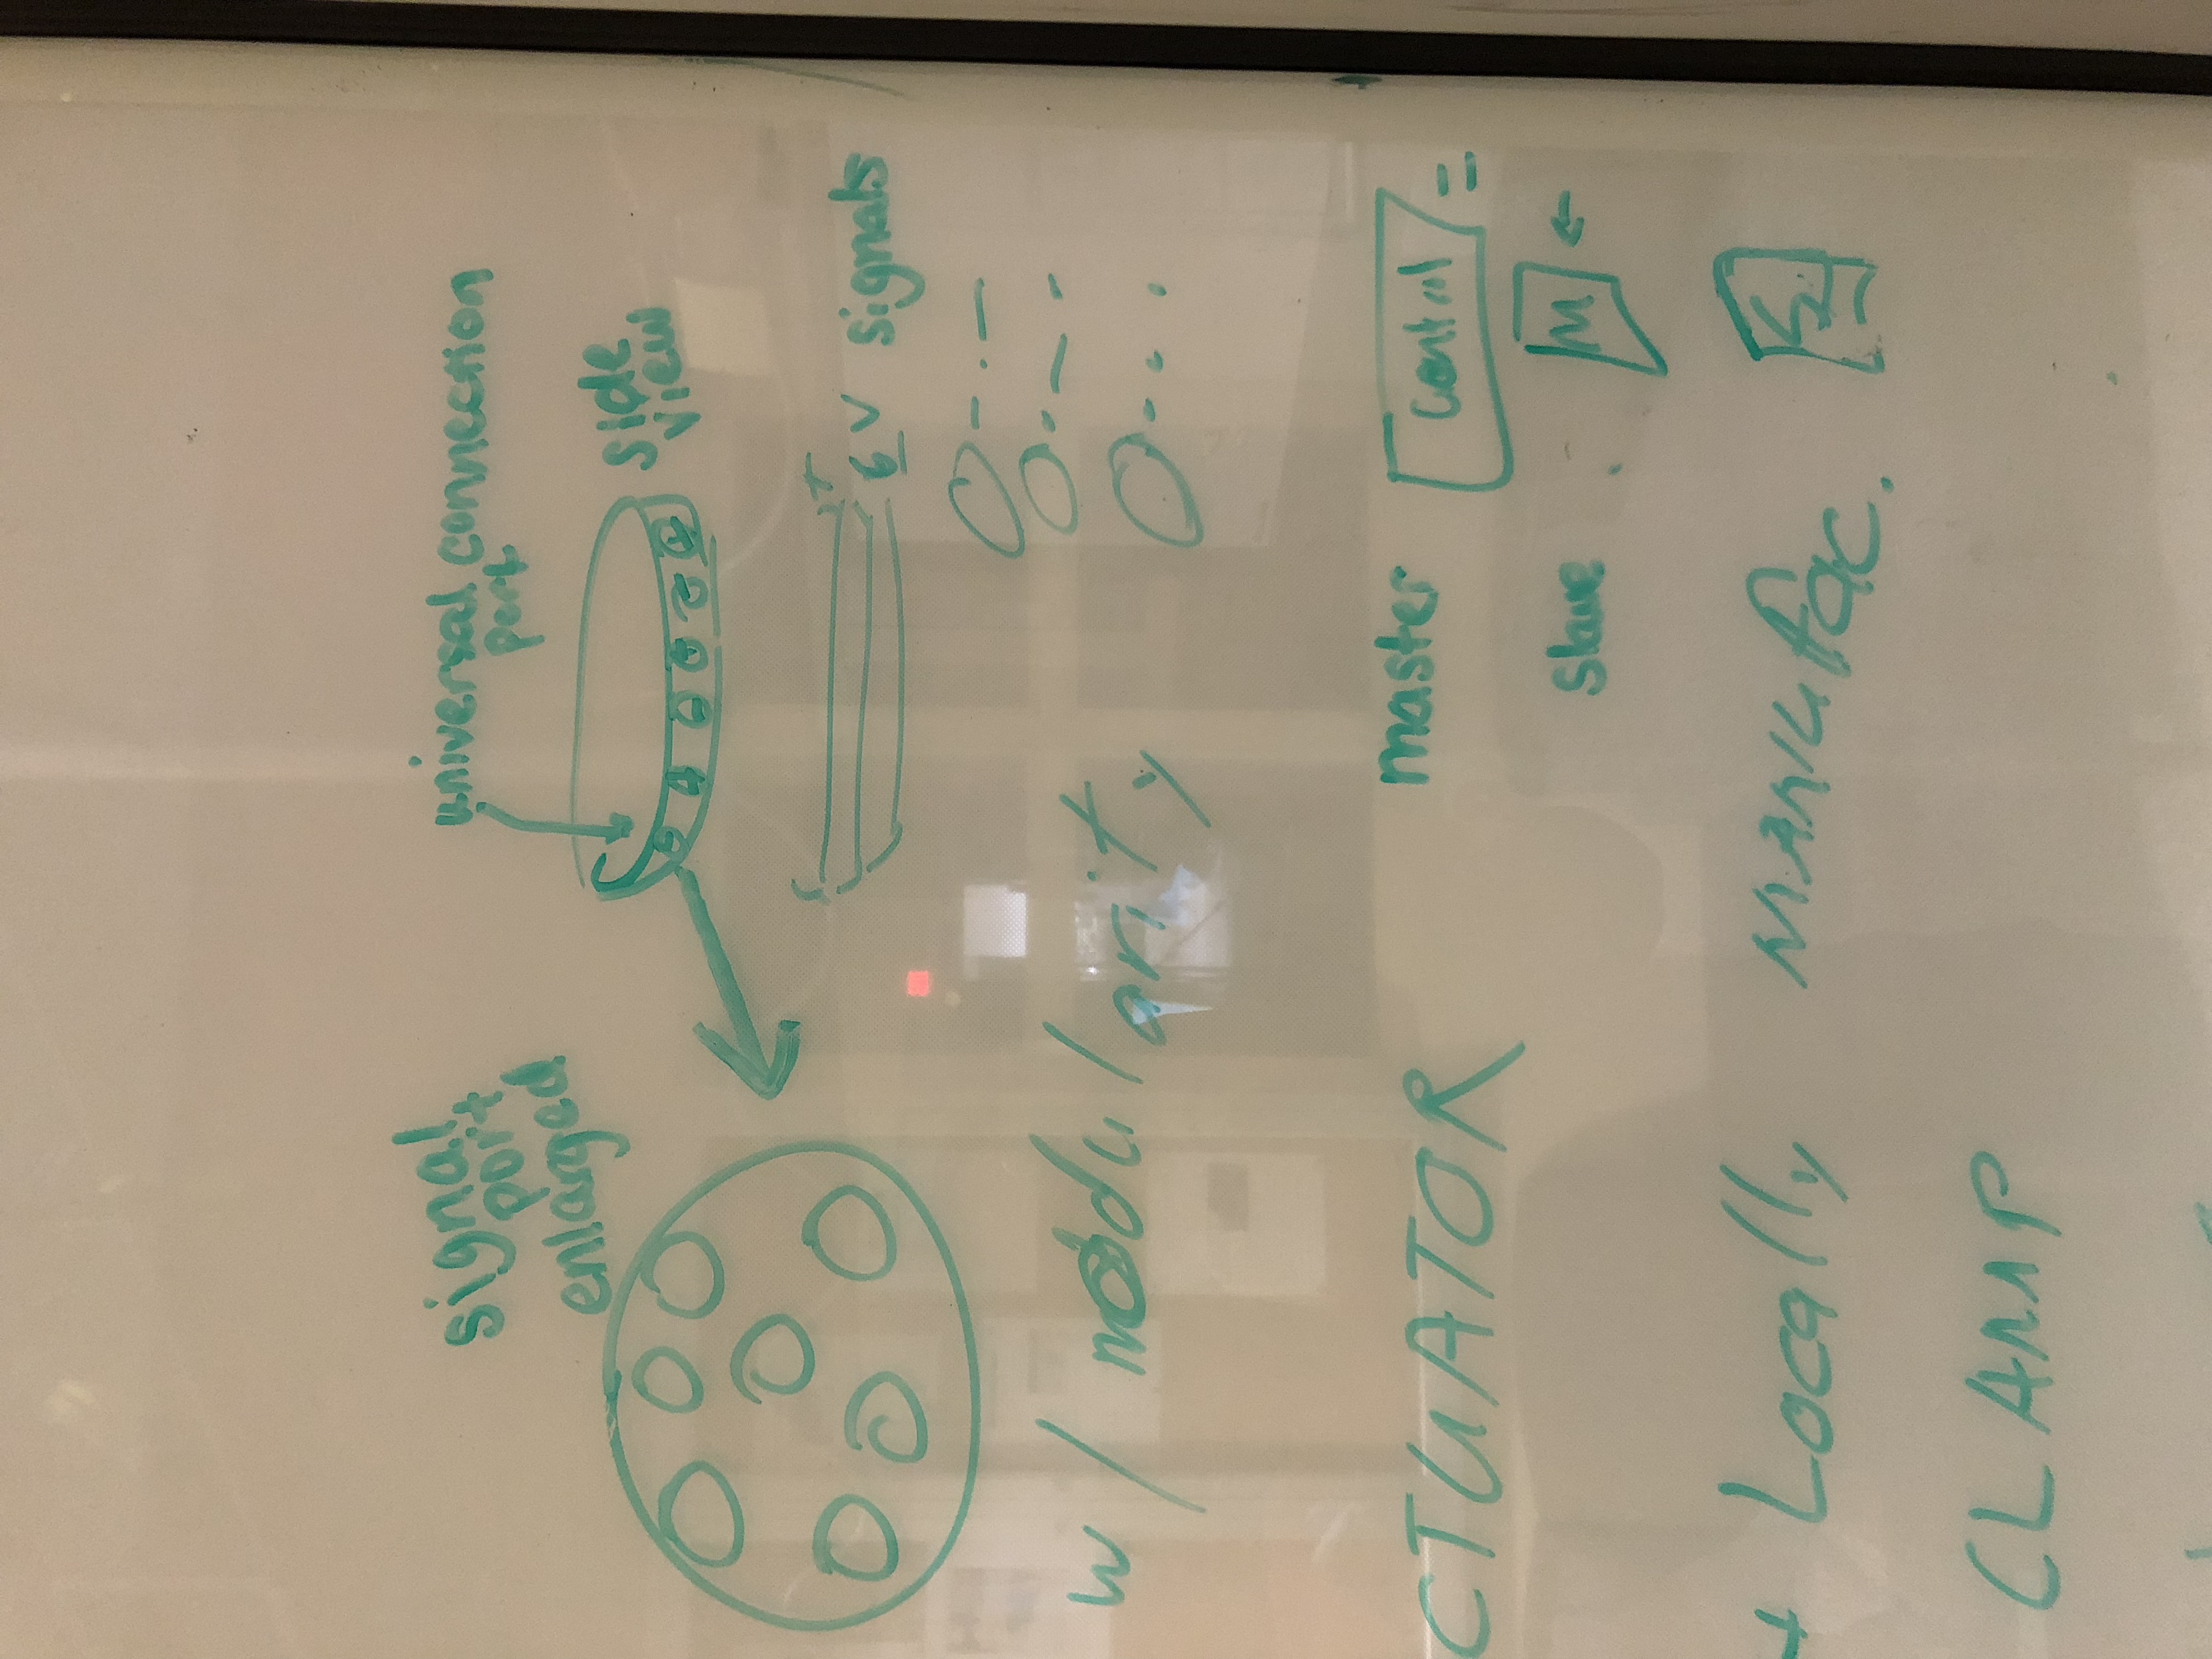 signal
port
enlarged
universal connection
port
side
view
+
6 V signals
w/ modularity
master
control =
CTUATOR
slave
M ←
Locally MANUfac.
CLAMP